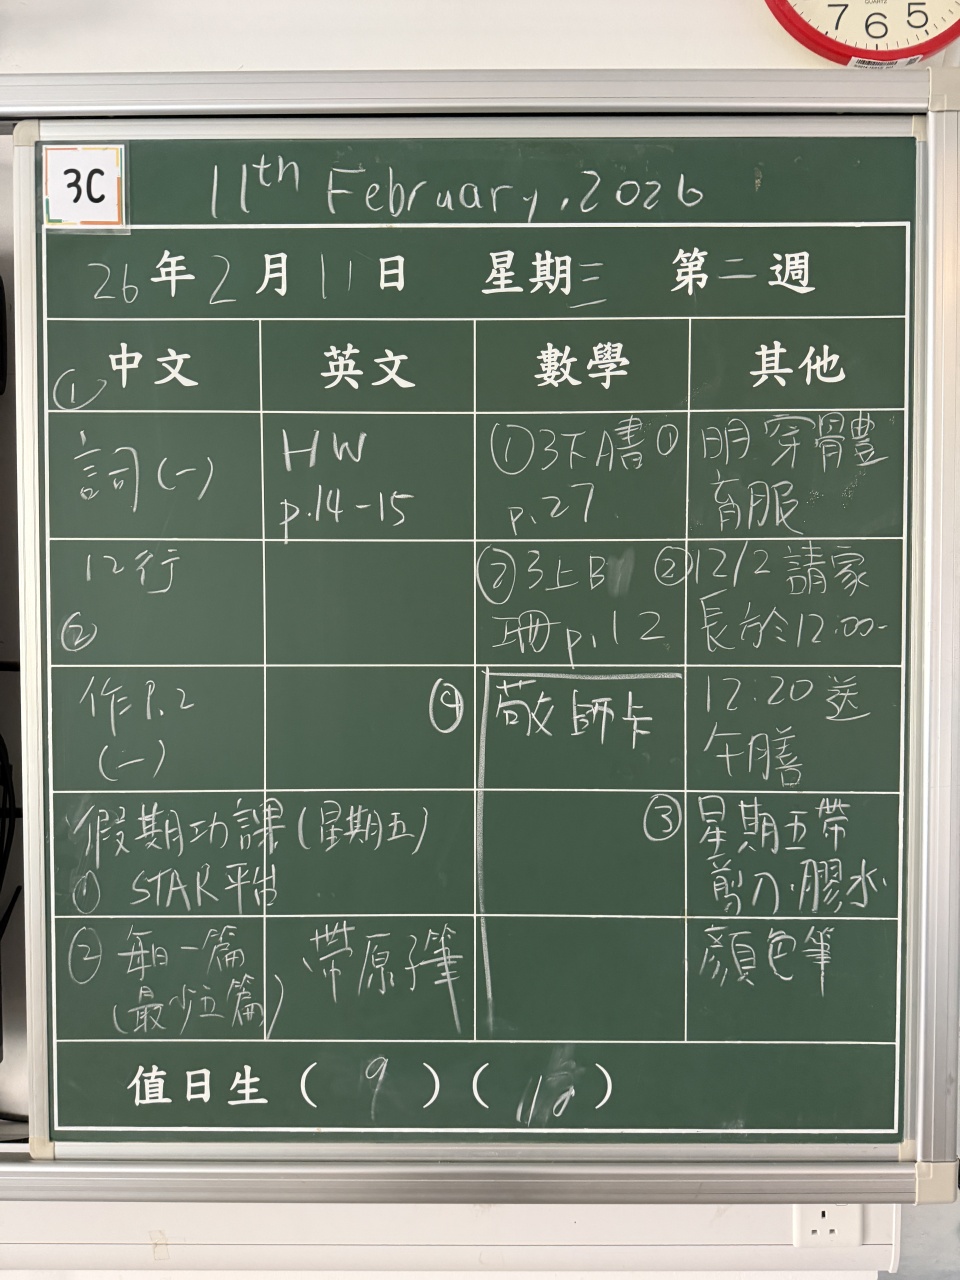 7 6 5
QUARTZ
3C
11th February, 2026
26年2月11日 星期三 第二週
中文 英文 數學 其他
①
詞(一)
12行
②
作P.2
(一)
假期功課(星期五)
① STAR平台
② 每日一篇
(最少五篇)
HW
p.14-15
帶原子筆
①3下A書
p.27
②3上B
冊p.12
④ 敬師卡
① 明穿體
育服
② 12/2 請家
長於12:00-
12:20 送
午膳
③ 星期五帶
剪刀、膠水、
顏色筆
值日生( 9 )( )